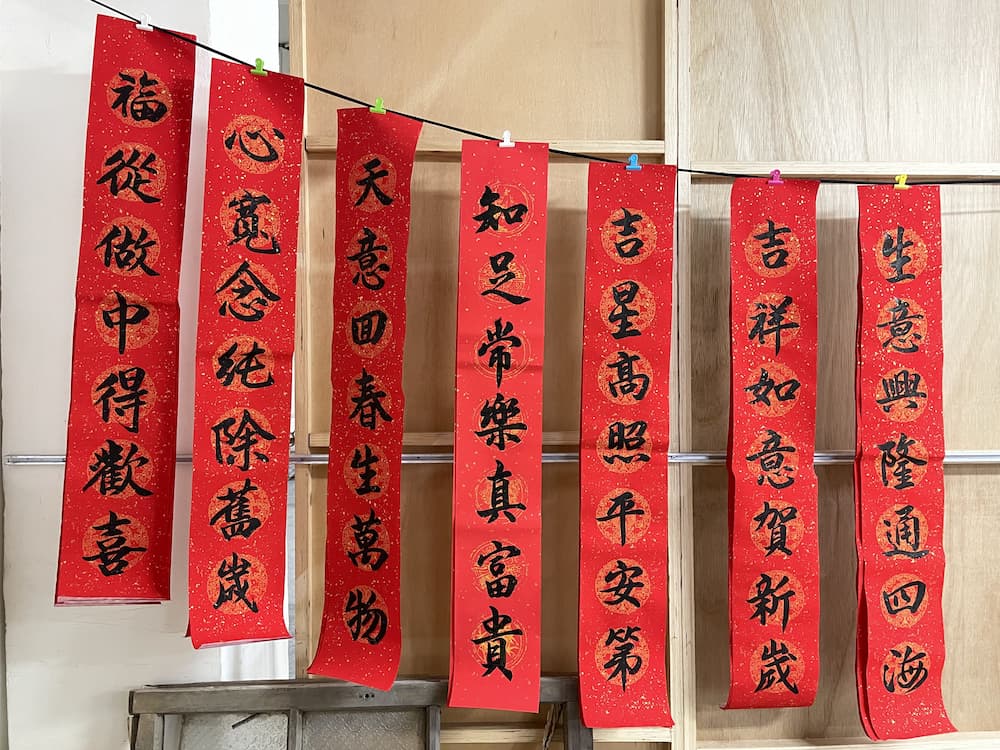 福從做中得歡喜
心寬念純除舊歲
天意回春生萬物
知足常樂真富貴
吉星高照平安第
吉祥如意賀新歲
生意興隆通四海